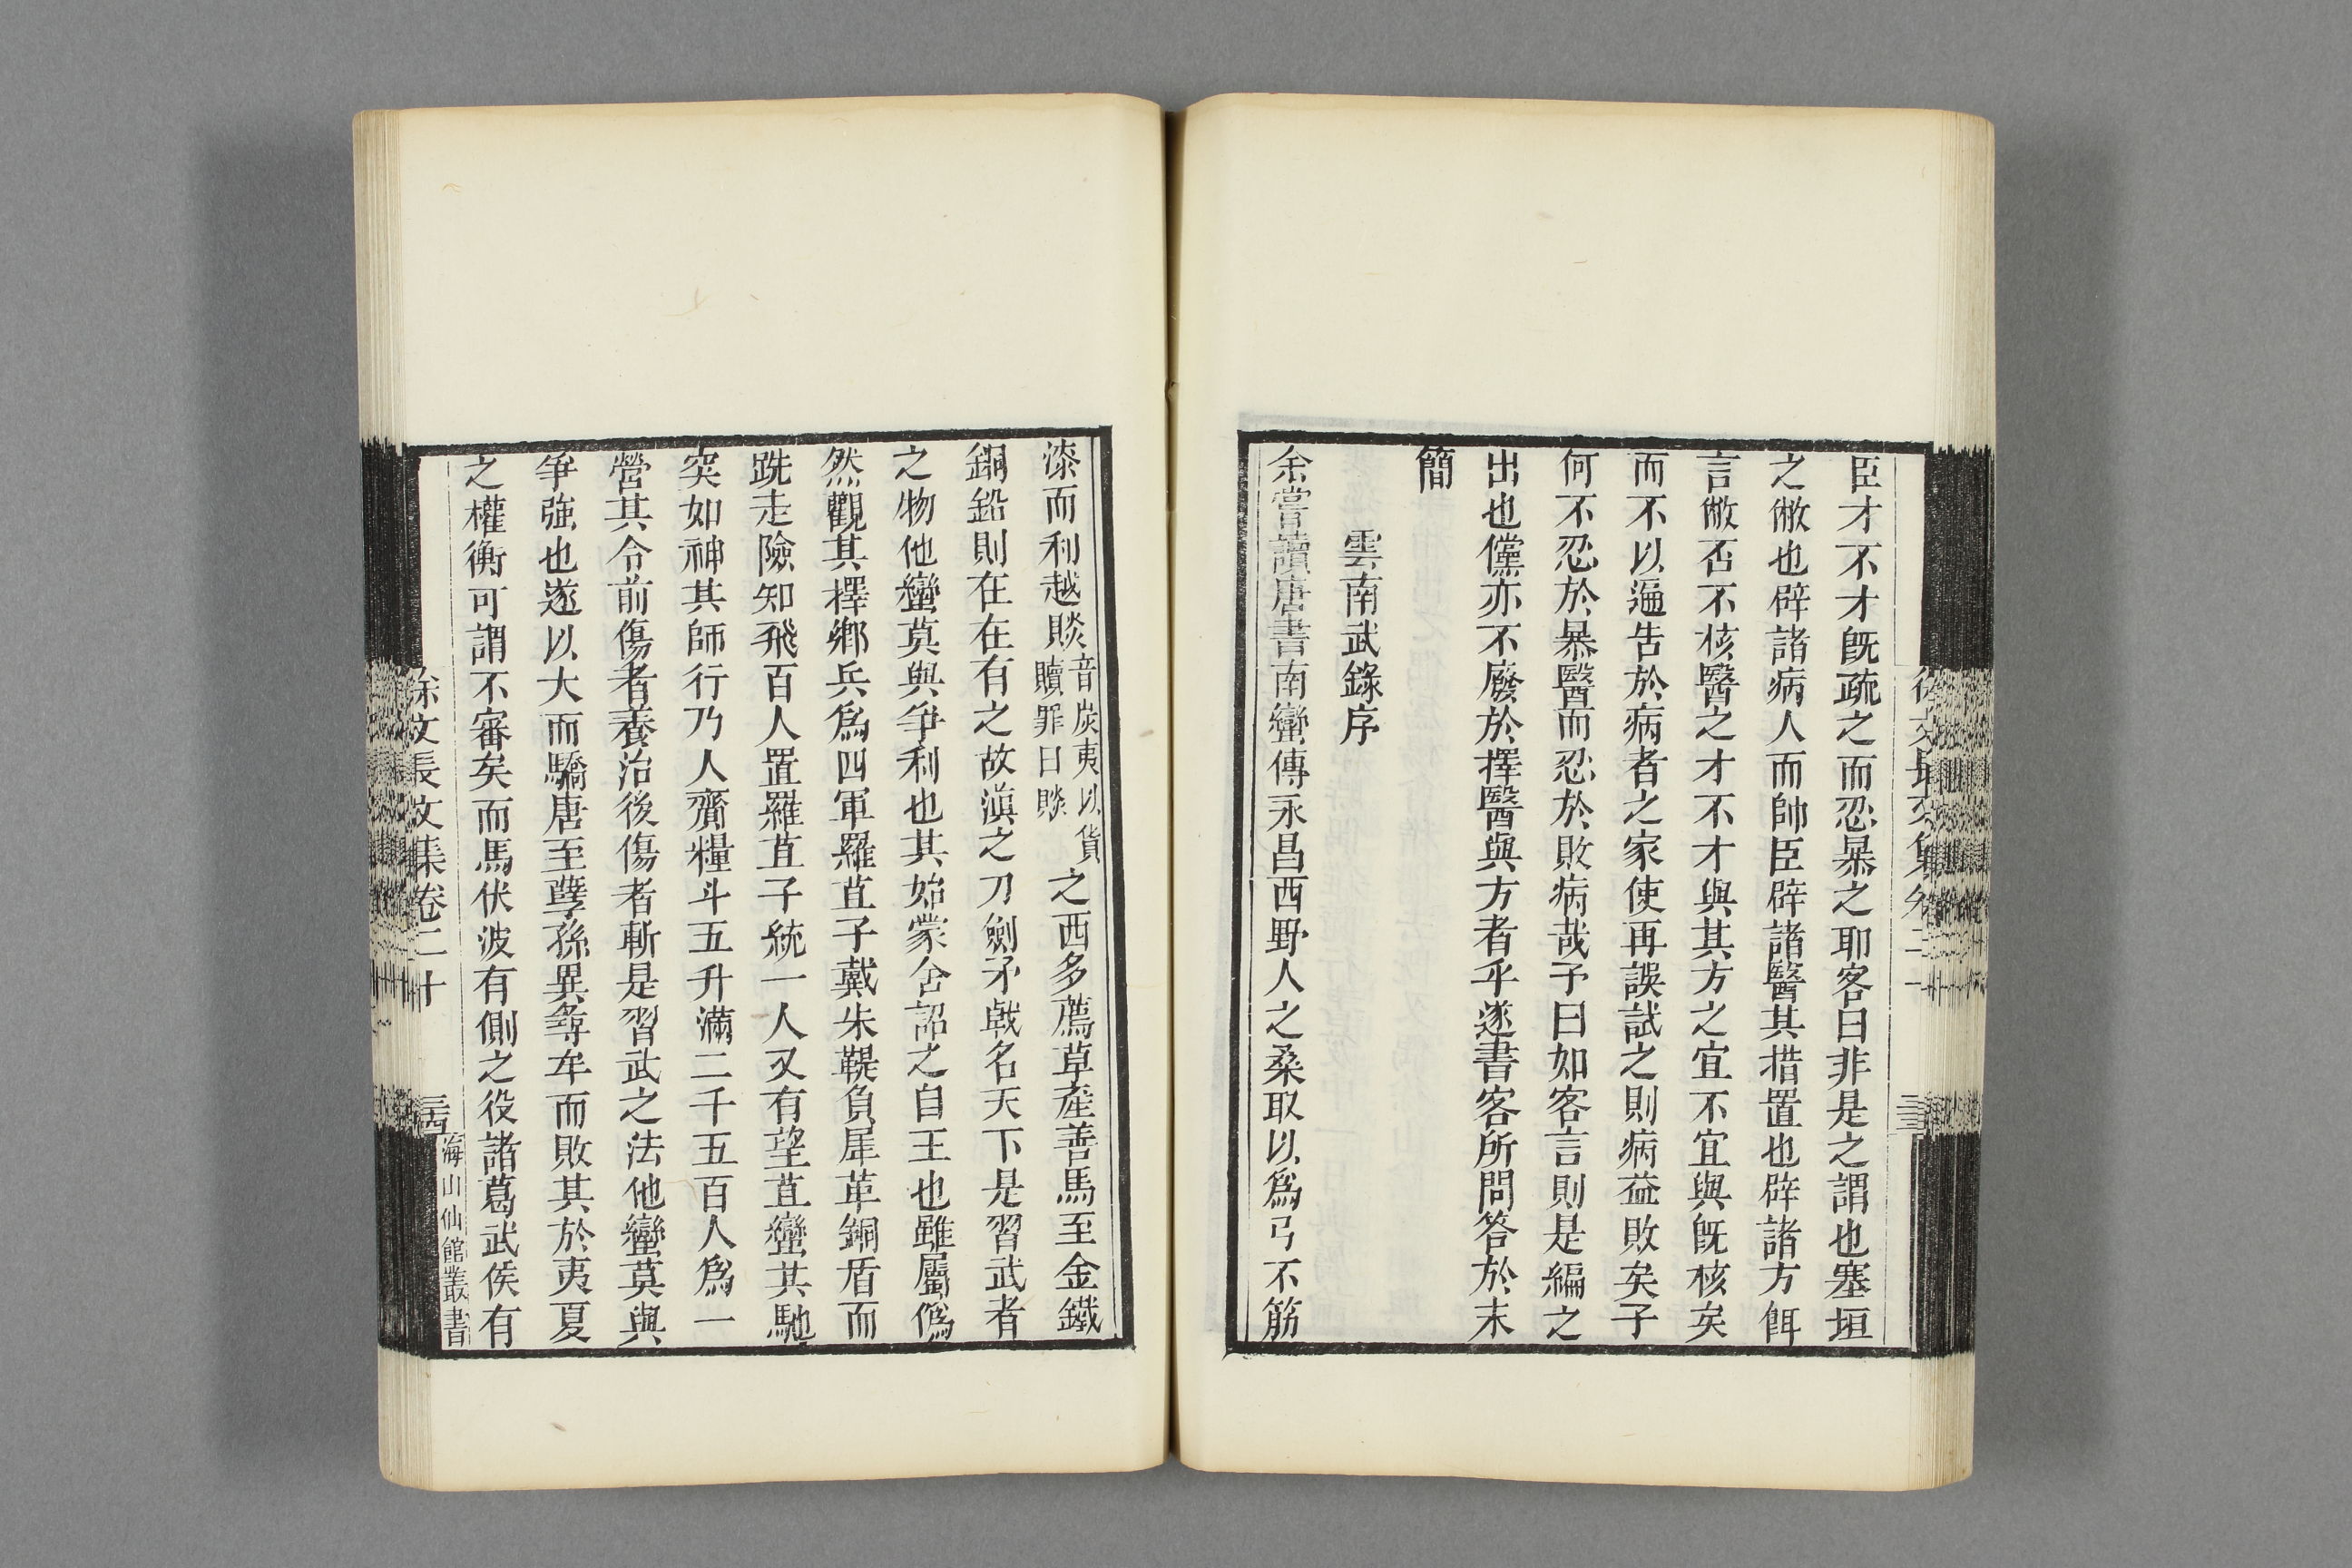 臣才不才旣疏之而忍暴之耶客曰非是之謂也塞垣
之儆也辟諸病人而帥臣辟諸醫其措置也辟諸方餌
言儆否不核醫之才不才與其方之宜不宜與旣核矣
而不以遍告於病者之家使再誤試之則病益敗矣子
何不忍於暴醫而忍於敗病哉予曰如客言則是編之
出也儻亦不廢於擇醫與方者乎遂書客所問答於末
簡
雲南武錄序
余嘗讀唐書南蠻傳永昌西野人之桑取以爲弓不筋
漆而利越賧音炭夷以貨贖罪曰賧之西多薦草產善馬至金鐵
銅鉛則在在有之故滇之刀劍矛戟名天下是習武者
之物他蠻莫與爭利也其始蒙舍詔之自王也雖屬僞
然觀其擇鄉兵爲四軍羅苴子戴朱鞮負犀革銅盾而
跣走險如飛百人置羅苴子統一人又有望苴蠻其馳
突如神其師行乃人齎糧斗五升滿二千五百人爲一
營其令前傷者養治後傷者斬是習武之法他蠻莫與
爭強也遂以大而驕唐至孽孫異等牟而敗其於夷夏
之權衡可謂不審矣而馬伏波有側之役諸葛武侯有
徐文長文集卷二十
三四
海山仙館叢書